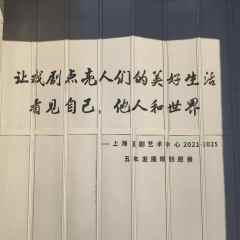 让戏剧点亮人们的美好生活
看见自己，他人和世界
——上海话剧艺术中心2021-2025
五年发展规划愿景